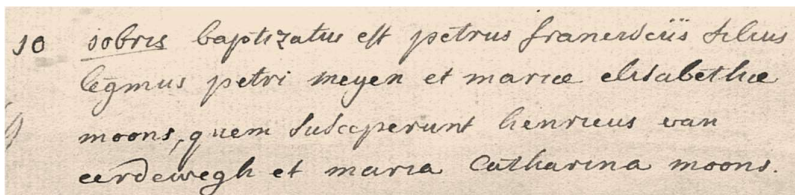 10 8obris baptizatus est petrus franciscus filius
legmus petri meyen et mariæ elisabethæ
moons, quem susceperunt henricus van
eerdewegh et maria Catharina moons.